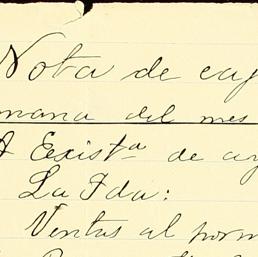 Nota de caj
mana del mes
A Exist.a de caj
La Ida:
Ventas al porm